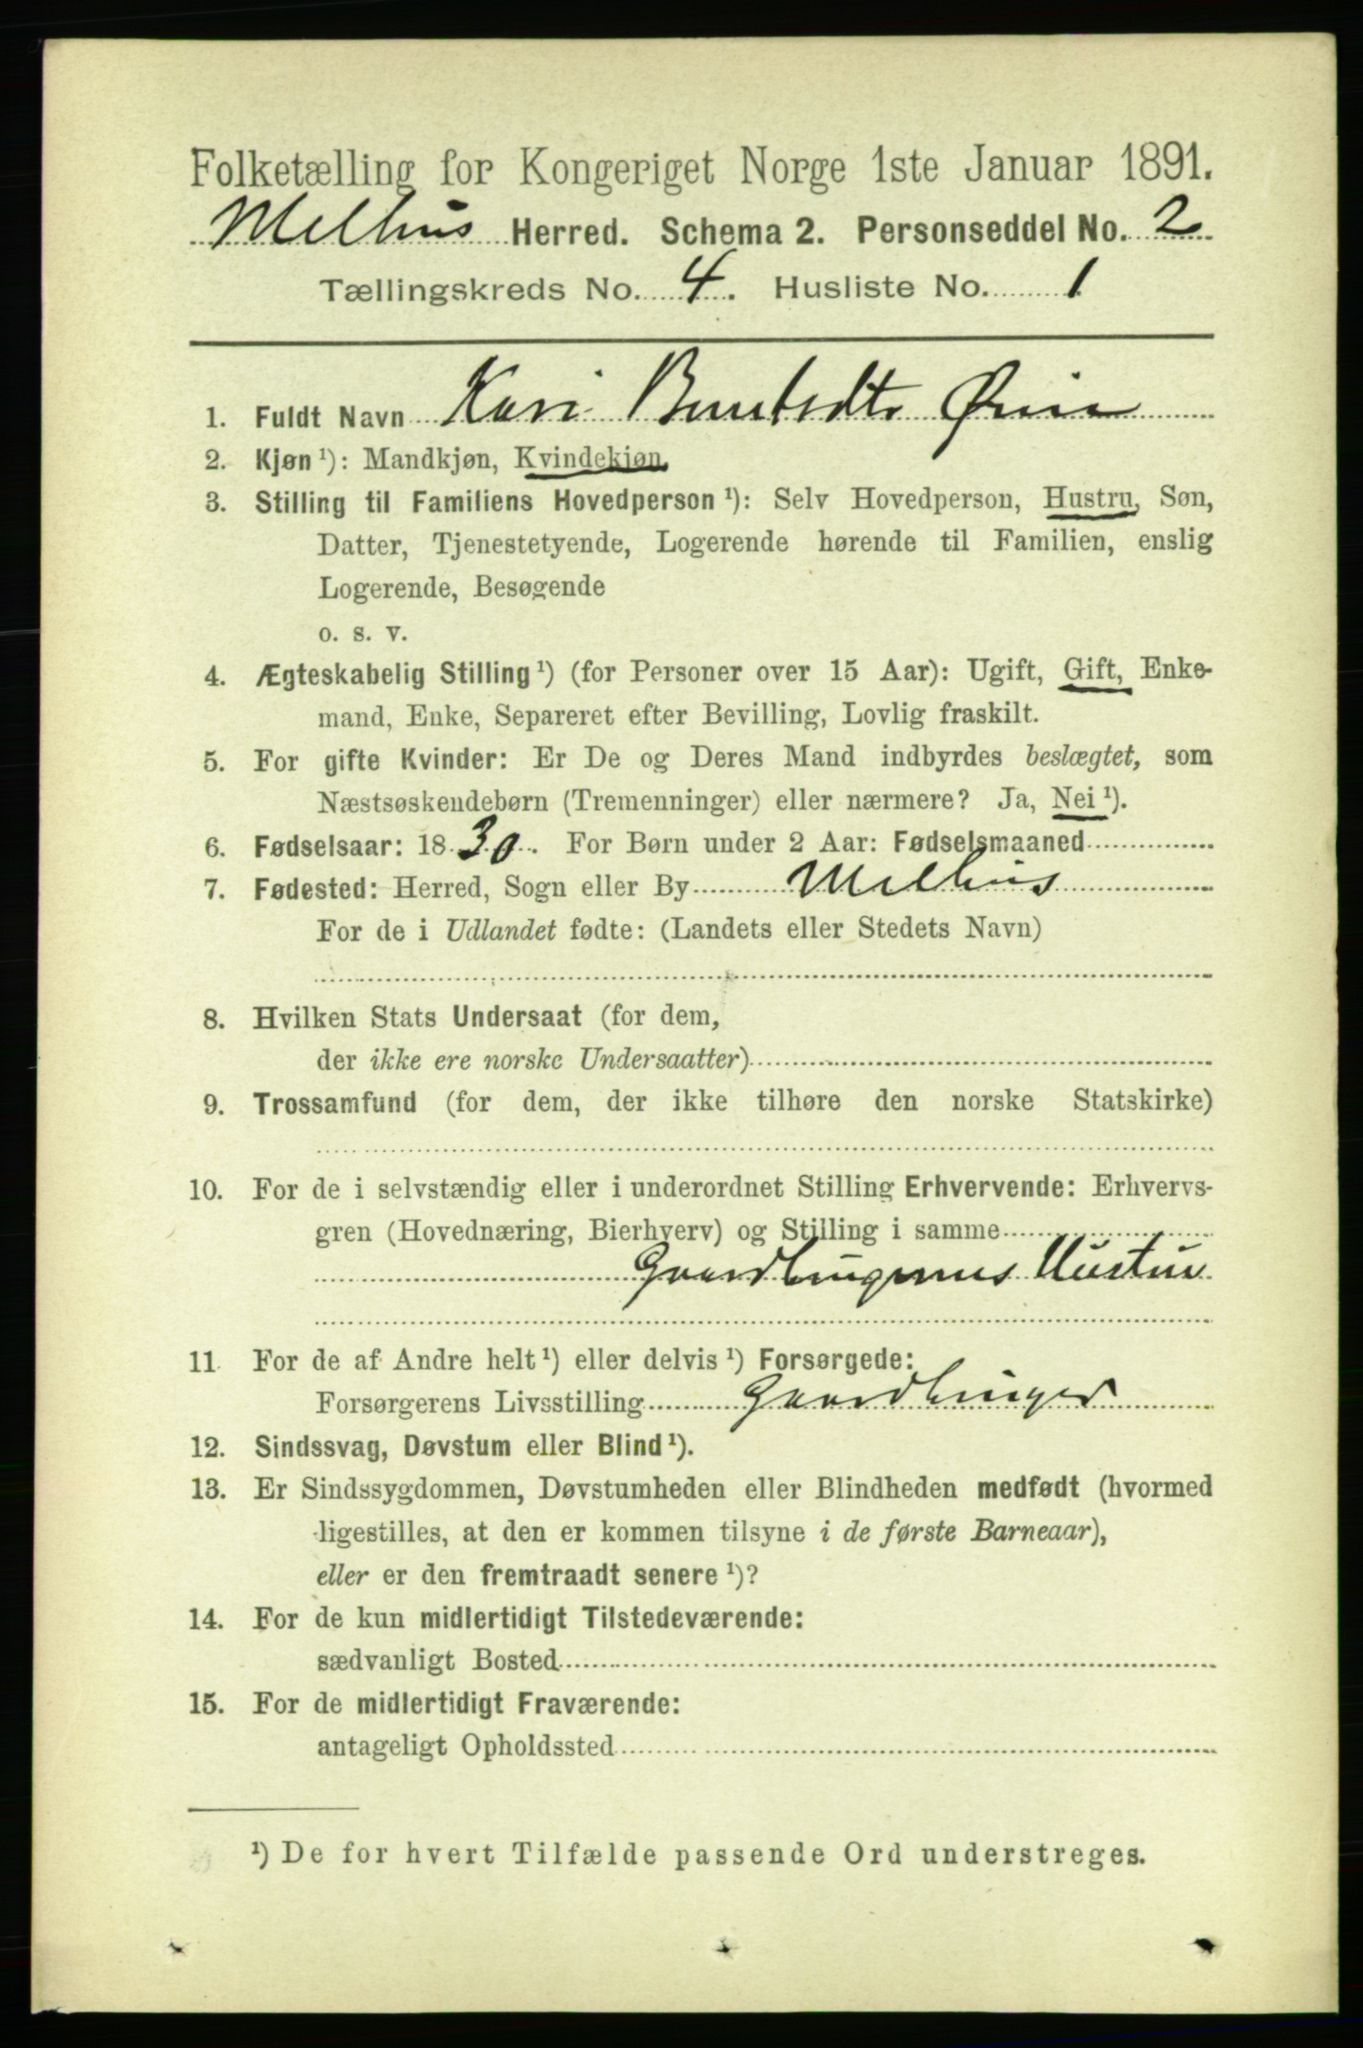 Folketælling for Kongeriget Norge 1ste Januar 1891.
Melhus Herred. Schema 2. Personseddel No. 2
Tællingskreds No. 4. Husliste No. 1
1. Fuldt Navn Kari
2. Kjøn ¹): Mandkjøn, Kvindekjøn.
3. Stilling til Familiens Hovedperson ¹): Selv Hovedperson, Hustru, Søn,
Datter, Tjenestetyende, Logerende hørende til Familien, enslig
Logerende, Besøgende
o. s. v.
4. Ægteskabelig Stilling ¹) (for Personer over 15 Aar): Ugift, Gift, Enke-
mand, Enke, Separeret efter Bevilling, Lovlig fraskilt.
5. For gifte Kvinder: Er De og Deres Mand indbyrdes beslægtet, som
Næstsøskendebørn (Tremenninger) eller nærmere? Ja, Nei ¹).
6. Fødselsaar: 1830. For Børn under 2 Aar: Fødselsmaaned
7. Fødested: Herred, Sogn eller By Melhus
For de i Udlandet fødte: (Landets eller Stedets Navn)
8. Hvilken Stats Undersaat (for dem,
der ikke ere norske Undersaatter)
9. Trossamfund (for dem, der ikke tilhøre den norske Statskirke)
10. For de i selvstændig eller i underordnet Stilling Erhvervende: Erhvervs-
gren (Hovednæring, Bierhverv) og Stilling i samme
Gaardbrugernes Hustru
11 For de af Andre helt ¹) eller delvis ¹) Forsørgede:
Forsørgerens Livsstilling Gaardbruger
12. Sindssvag, Døvstum eller Blind ¹).
13. Er Sindssygdommen, Døvstumheden eller Blindheden medfødt (hvormed
ligestilles, at den er kommen tilsyne i de første Barneaar),
eller er den fremtraadt senere ¹)?
14. For de kun midlertidigt Tilstedeværende:
sædvanligt Bosted
15. For de midlertidigt Fraværende:
antageligt Opholdssted
¹) De for hvert Tilfælde passende Ord understreges.